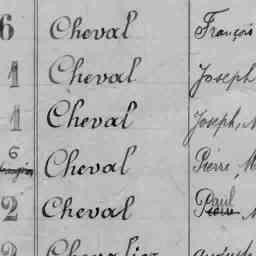 6 Cheval François
1 Cheval Joseph
1 Cheval Joseph, M
6 Cheval Pierre, M
2 Cheval Paul
2 Chevalier